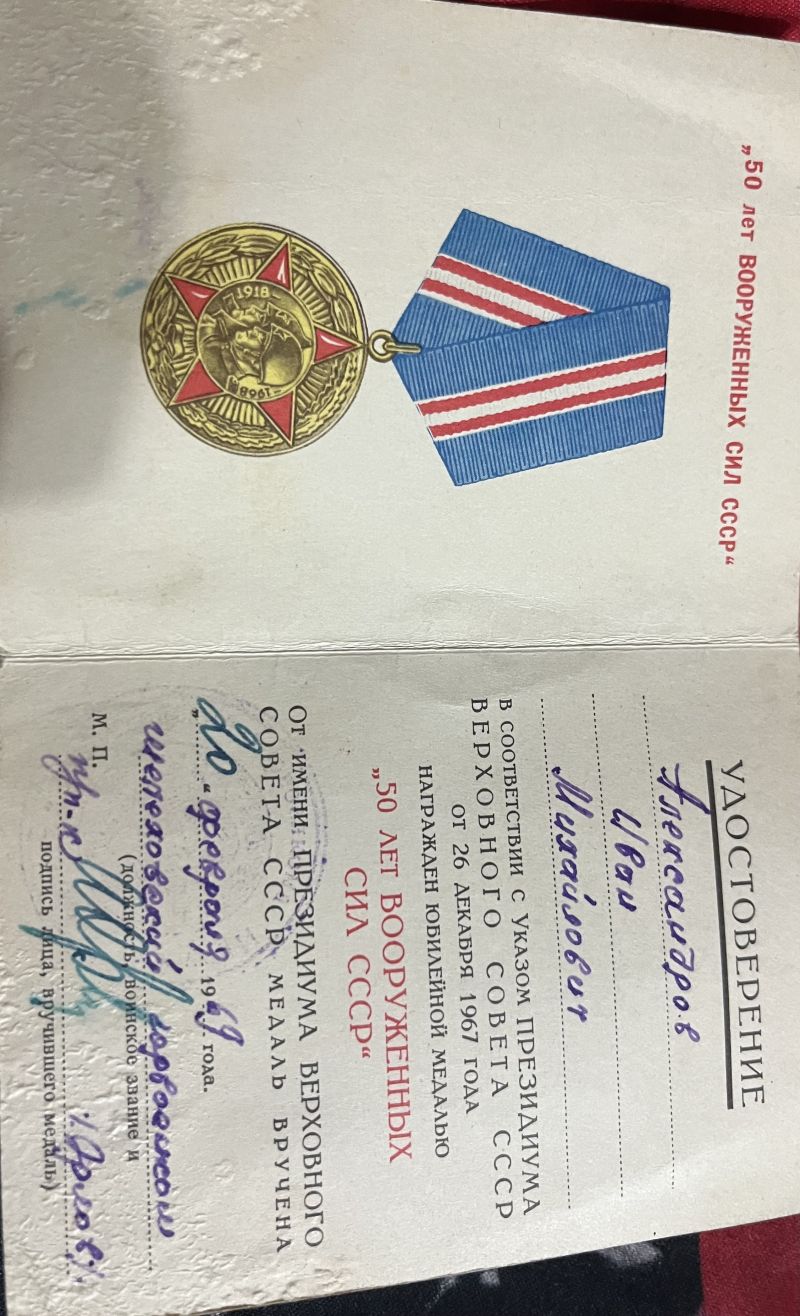 „50 лет ВООРУЖЕННЫХ СИЛ СССР“
1918
1968
УДОСТОВЕРЕНИЕ
Александров
Иван
Михайлович
В СООТВЕТСТВИИ С УКАЗОМ ПРЕЗИДИУМА
ВЕРХОВНОГО СОВЕТА СССР
ОТ 26 ДЕКАБРЯ 1967 ГОДА
НАГРАЖДЕН ЮБИЛЕЙНОЙ МЕДАЛЬЮ
„50 ЛЕТ ВООРУЖЕННЫХ
СИЛ СССР“
ОТ ИМЕНИ ПРЕЗИДИУМА ВЕРХОВНОГО
СОВЕТА СССР МЕДАЛЬ ВРУЧЕНА
„20“ февраля 1969 года.
горвоенком
(должность, воинское звание и
М. П. п/п-к /Орлов/
подпись лица, вручившего медаль)